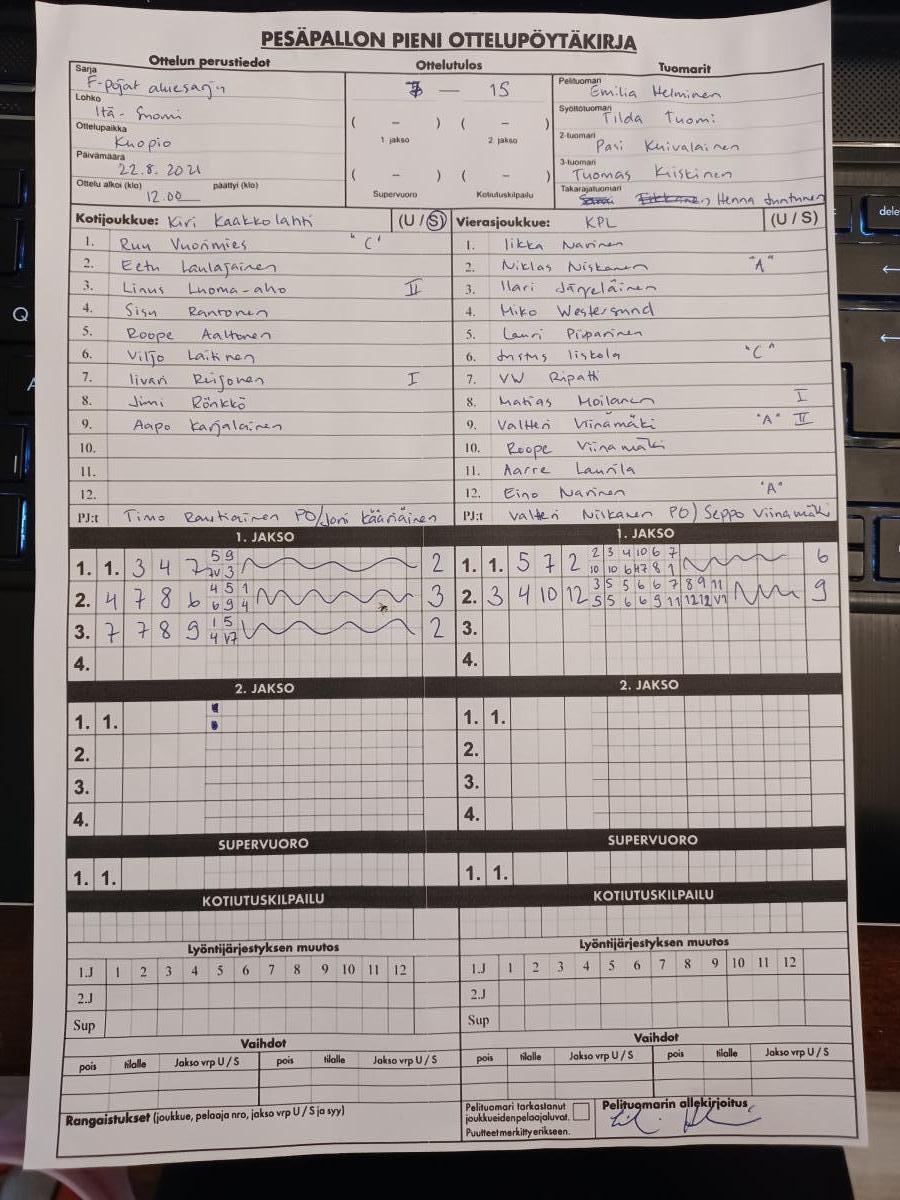 PESÄPALLON PIENI OTTELUPÖYTÄKIRJA
Ottelun perustiedot Ottelutulos Tuomarit
Sarja F-pojat aluesarja
Lohko Itä-Suomi
Ottelupaikka Kuopio
Päivämäärä 22.8.2021
Ottelu alkoi (klo) 12.00 päättyi (klo)
7 — 15
( – ) ( – )
1. jakso 2. jakso
( – ) ( – )
Supervuoro Kotiutuskilpailu
Pelituomari Emilia Helminen
Syöttötuomari Tilda Tuomi
2-tuomari Pasi Kuivalainen
3-tuomari Tuomas Kiiskinen
Takarajatuomari Henna Juntunen
Kotijoukkue: Kiri Kaakkolahti (U / S)
1. Ruu Vuorimies "C"
2. Eetu Laulajainen
3. Linus Luoma-aho II
4. Sisu Rantonen
5. Roope Aaltonen
6. Viljo Laitinen
7. Iivari Reijonen I
8. Jimi Rönkkö
9. Aapo Karjalainen
10.
11.
12.
PJ:t Timo Rautiainen PO/Joni Kääriäinen
Vierasjoukkue: KPL (U / S)
1. Iikka Narinen
2. Niklas Niskanen "A"
3. Ilari Järpeläinen
4. Miko Westersund
5. Lauri Piiparinen
6. Justus Iiskola "C"
7. VW Ripatti
8. Matias Moilanen I
9. Valtteri Viinämäki "A" II
10. Roope Viinamäki
11. Aarre Laurila
12. Eino Narinen "A"
PJ:t Valtteri Niskanen PO) Seppo Viinamäki
1. JAKSO
1. 1. 3 4 7 5 9 2
7V 3
2. 4 7 8 6 4 5 1 3
6 9 4
3. 7 7 8 9 1 5 2
4 V7
4.
1. JAKSO
1. 1. 5 7 2 2 3 4 10 6 7 6
10 10 6 47 8 1
2. 3 4 10 12 3 5 5 6 6 7 8 9 11 9
5 5 6 6 9 11 12 12 V1
3.
4.
2. JAKSO
1. 1.
2.
3.
4.
2. JAKSO
1. 1.
2.
3.
4.
SUPERVUORO
1. 1.
SUPERVUORO
1. 1.
KOTIUTUSKILPAILU
KOTIUTUSKILPAILU
Lyöntijärjestyksen muutos
1.J 1 2 3 4 5 6 7 8 9 10 11 12
2.J
Sup
Lyöntijärjestyksen muutos
1.J 1 2 3 4 5 6 7 8 9 10 11 12
2.J
Sup
Vaihdot
pois tilalle Jakso vrp U / S pois tilalle Jakso vrp U / S
Vaihdot
pois tilalle Jakso vrp U / S pois tilalle Jakso vrp U / S
Rangaistukset (joukkue, pelaaja nro, jakso vrp U / S ja syy)
Pelituomari tarkastanut
joukkueiden pelaajaluvat.
Puutteet merkitty erikseen.
Pelituomarin allekirjoitus
Q
dele